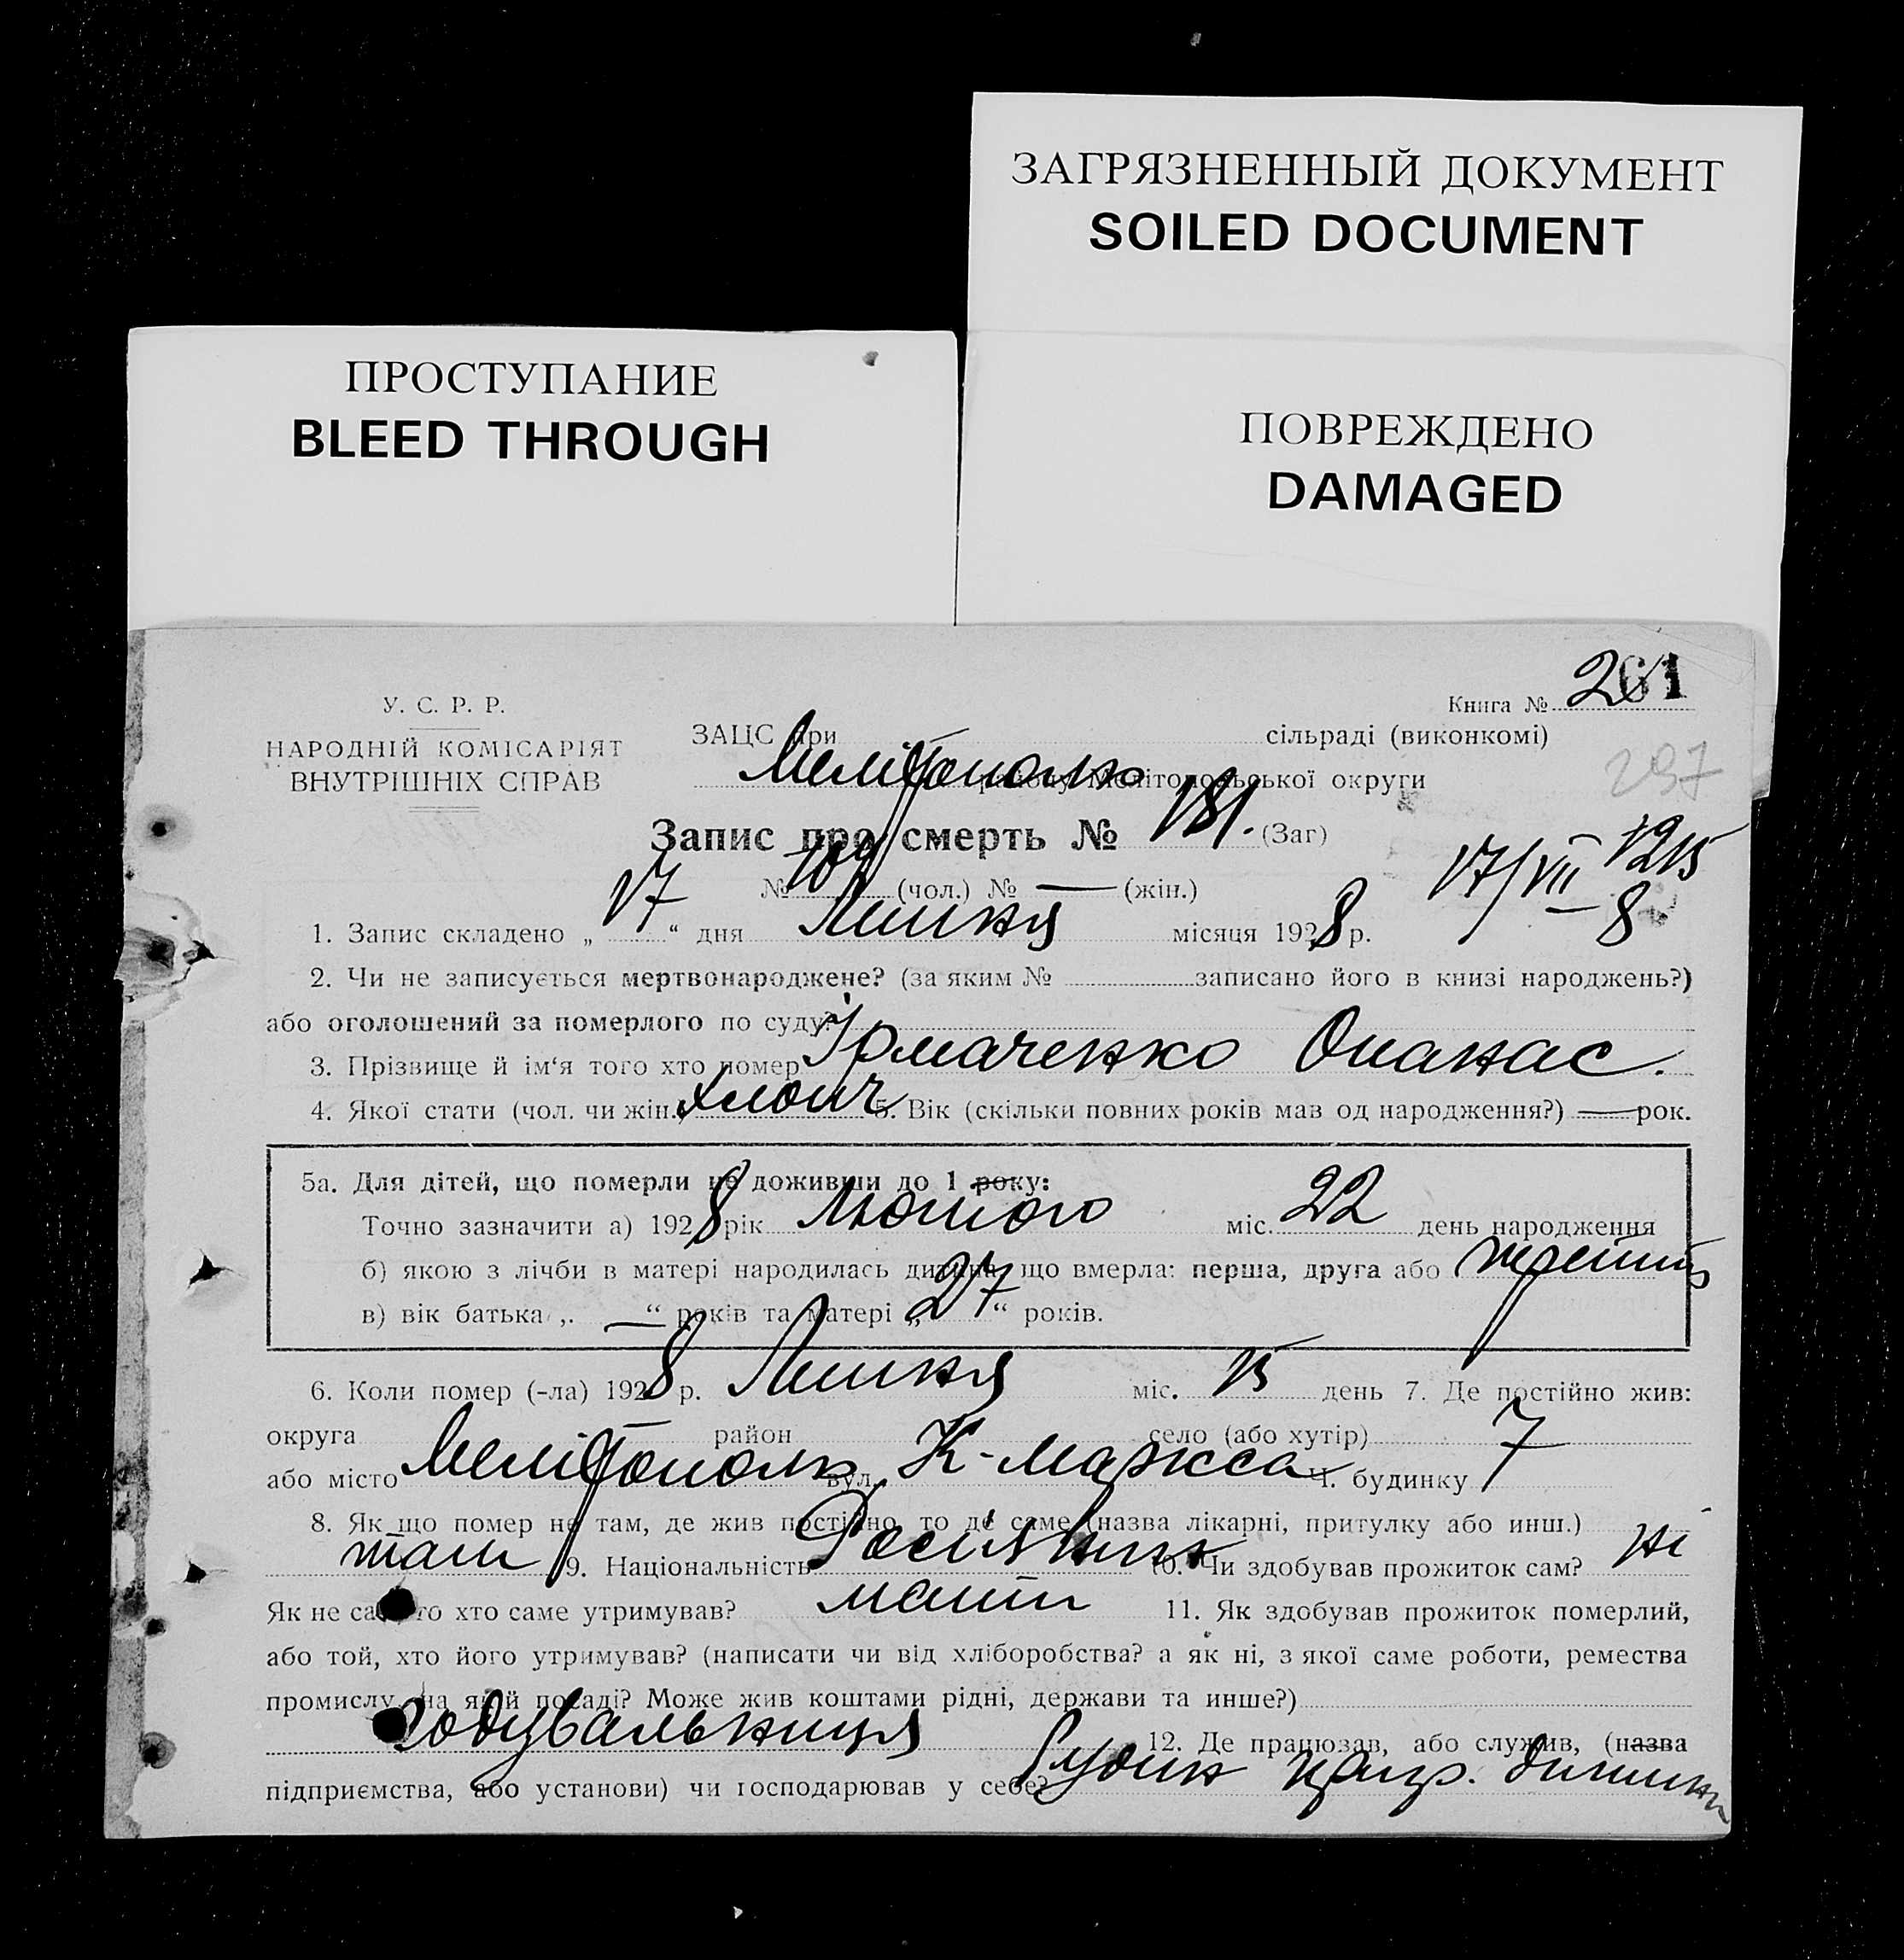 ЗАГРЯЗНЕННЫЙ ДОКУМЕНТ
SOILED DOCUMENT
ПРОСТУПАНИЕ
BLEED THROUGH
ПОВРЕЖДЕНО
DAMAGED
У. С. Р. Р.
НАРОДНІЙ КОМІСАРІЯТ
ВНУТРІШНІХ СПРАВ
Книга № 261
ЗАЦС при сільраді (виконкомі)
Мелітополь району Мелітопольської округи
297
Запис про смерть № 181. (Заг)
№ 109 (чол.) № — (жін.)
17/VII 1215
8
1. Запис складено „ 17 “ дня Липня місяця 1928 р.
2. Чи не записується мертвонароджене? (за яким № записано його в книзі народжень?)
або оголошений за померлого по суду?
3. Прізвище й ім‘я того хто помер Єрмаченко Опанас.
4. Якої стати (чол. чи жін.) хлопч 5. Вік (скільки повних років мав од народження?) — рок.
5а. Для дітей, що померли не доживши до 1 року:
Точно зазначити а) 1928 рік Лютого міс. 22 день народження
б) якою з лічби в матері народилась дитина, що вмерла: перша, друга або третий
в) вік батька „ — “ років та матері „ 27 “ років.
6. Коли помер (-ла) 1928 р. Липня міс. 15 день 7. Де постійно жив:
округа район село (або хутір)
або місто Мелітополь вул. К-Маркса Ч. будинку 7
8. Як що помер не там, де жив постійно, то де саме (назва лікарні, притулку або инш.)
там 9. Національність 10. Чи здобував прожиток сам? ні
Як не сам, то хто саме утримував? мати 11. Як здобував прожиток померлий,
або той, хто його утримував? (написати чи від хліборобства? а як ні, з якої саме роботи, ремества
промислу, на якій посаді? Може жив коштами рідні, держави та инше?)
годувальниця 12. Де працював, або служив, (назва
підприємства, або установи) чи господарював у себе? Будинк